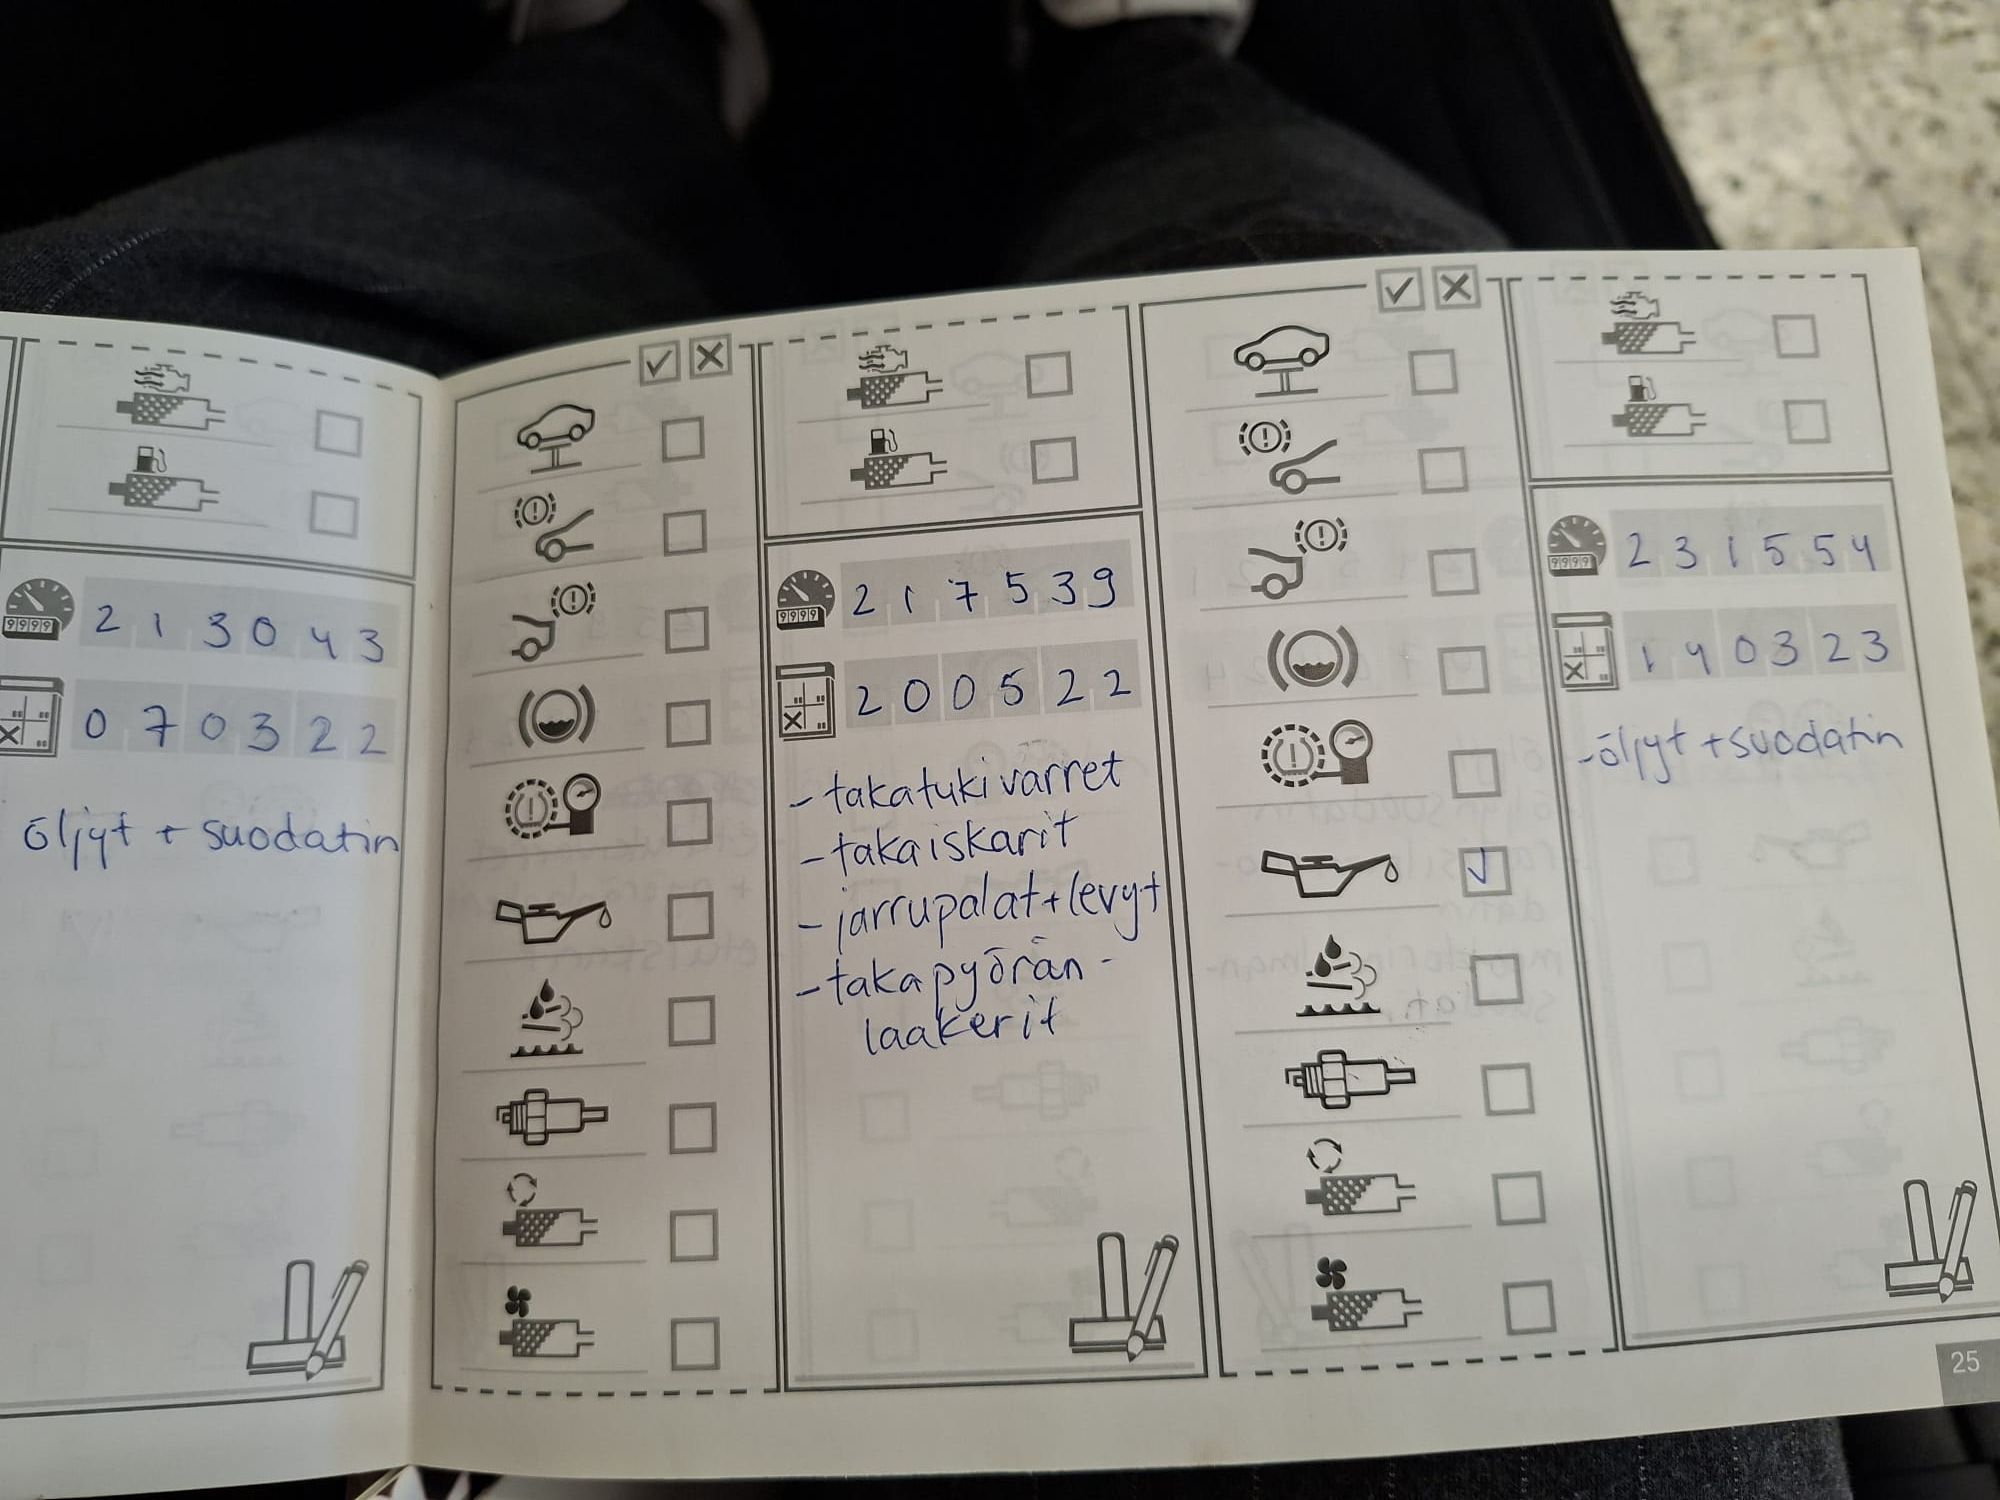 9999
2 1 3 0 4 3
0 7 0 3 2 2
öljyt + suodatin
9999
2 1 7 5 3 9
2 0 0 5 2 2
- takatukivarret
- takaiskarit
- jarrupalat + levyt
- takapyörän -
laakerit
9999
2 3 1 5 5 4
1 4 0 3 2 3
- öljyt + suodatin
25